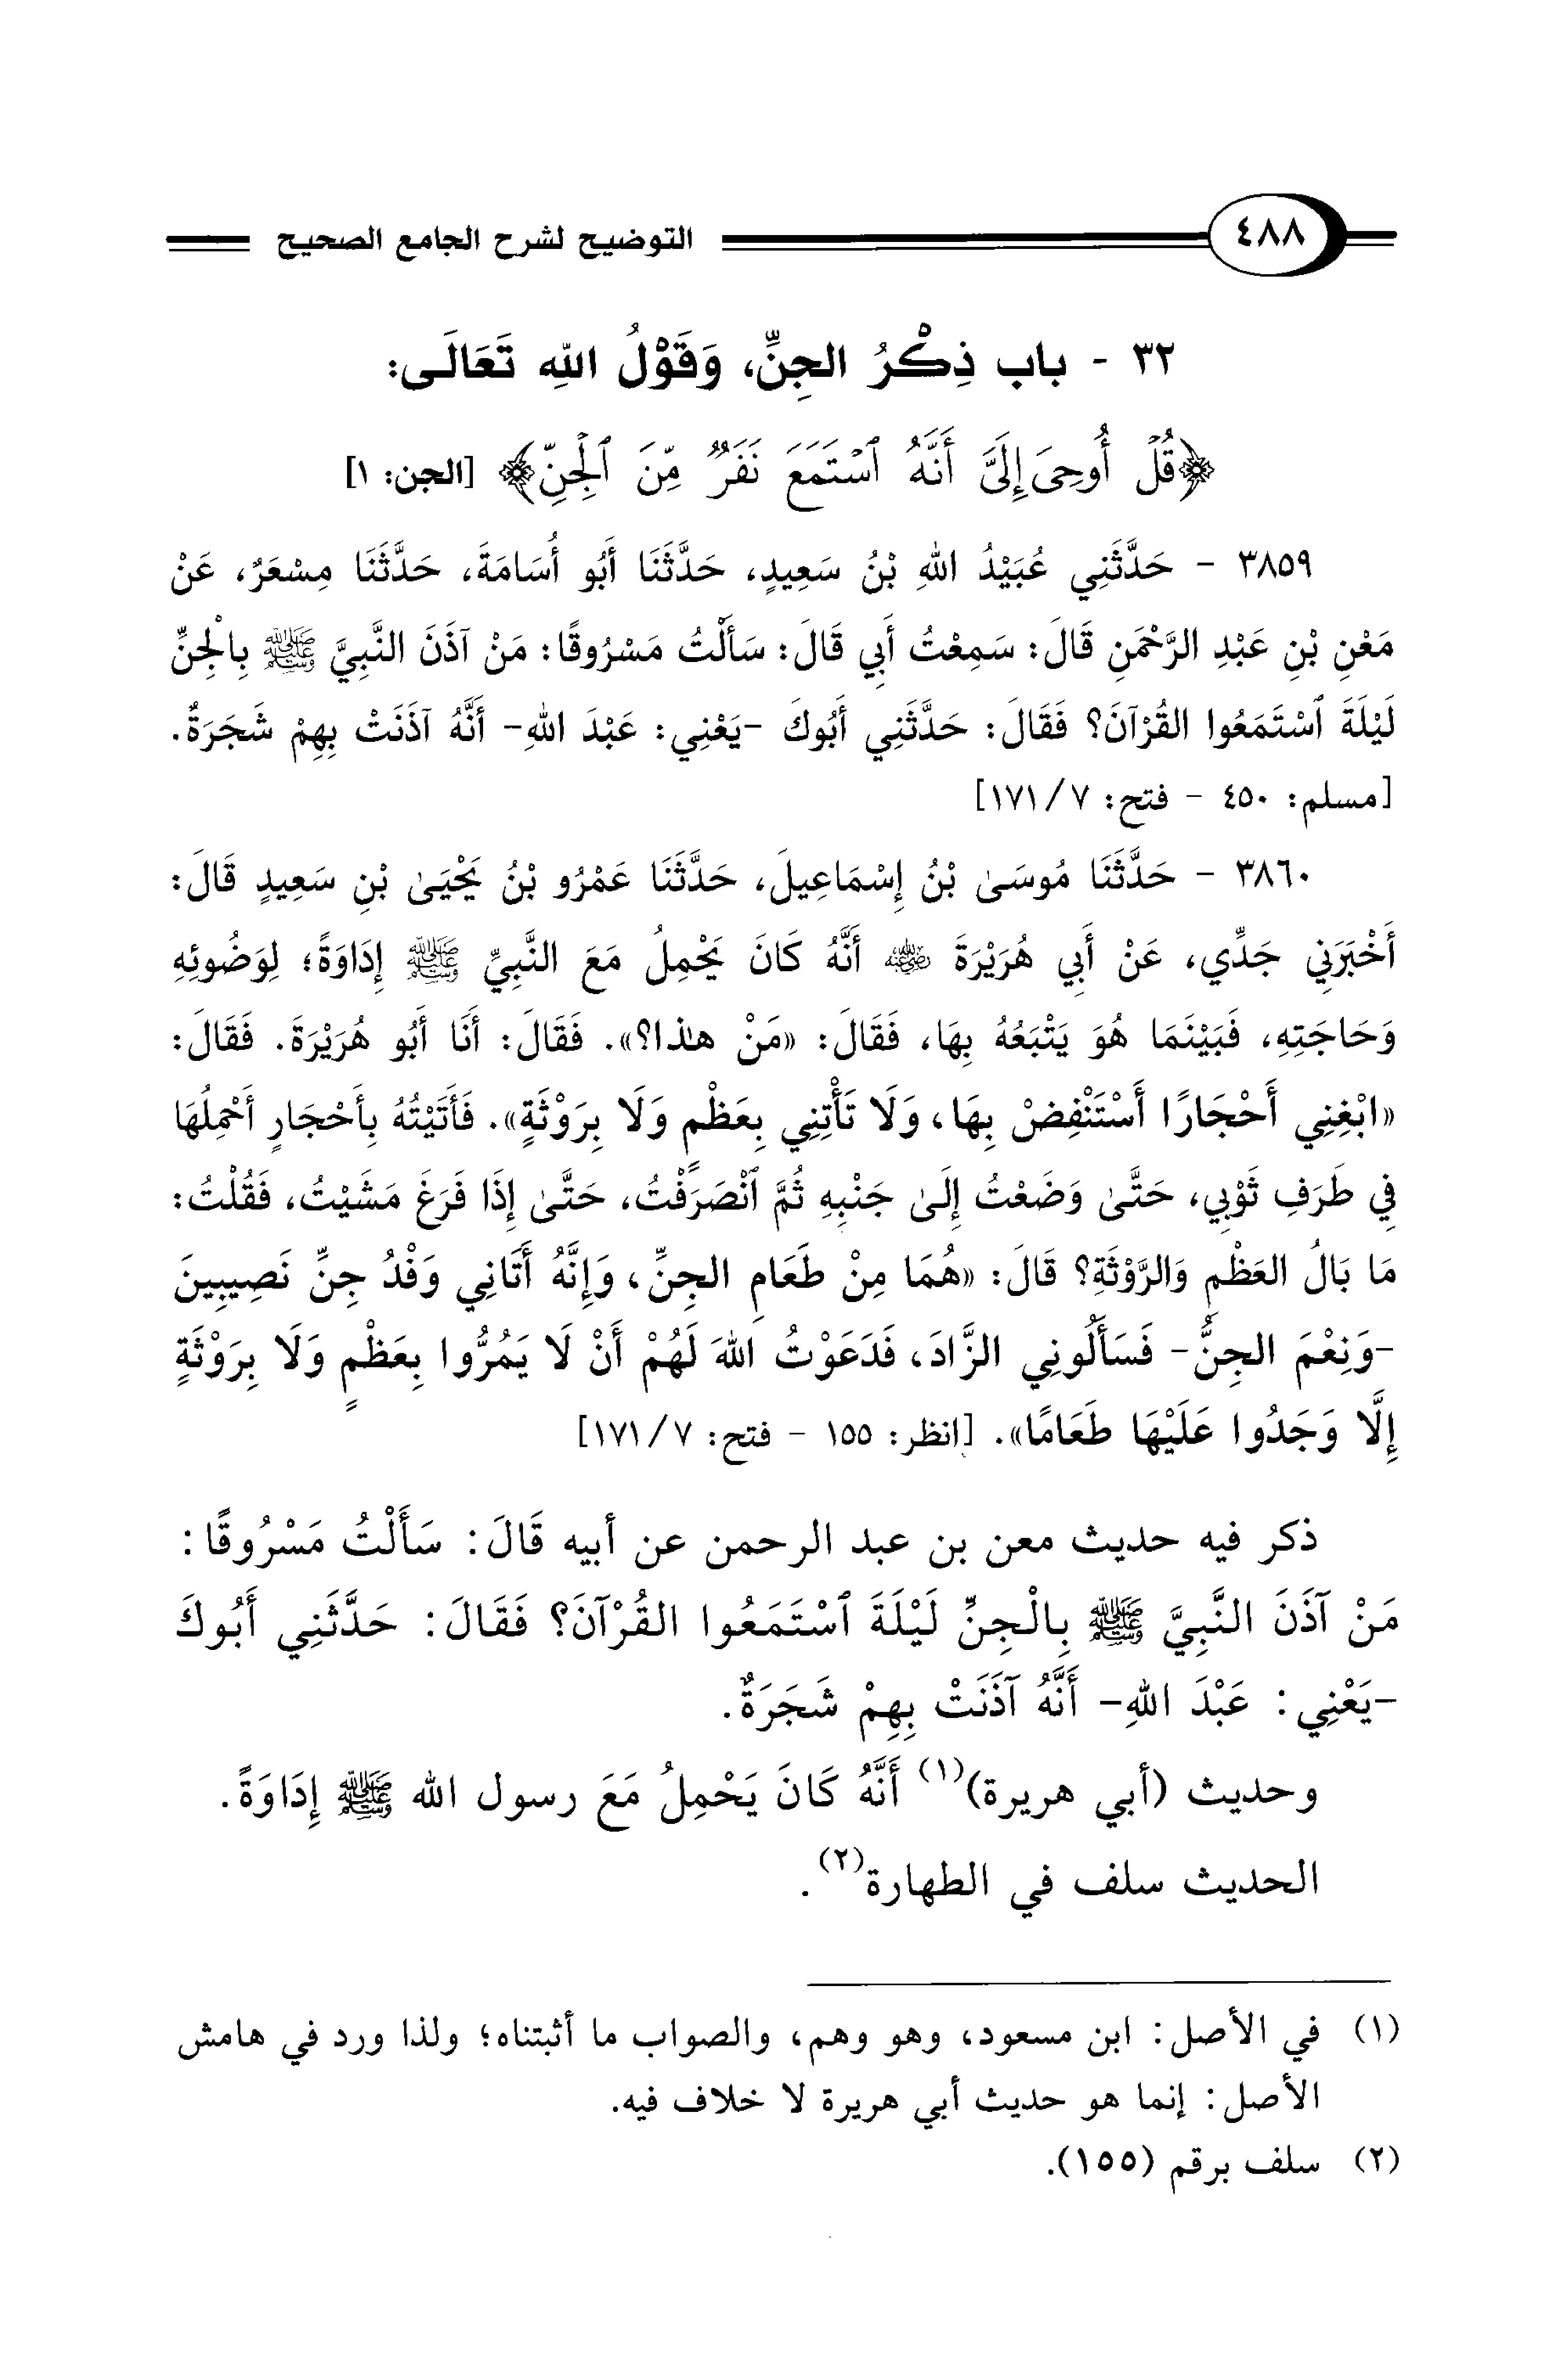 ٤٨٨ التوضيح لشرح الجامع الصحيح
٣٢ - باب ذِكْرُ الجِنِّ، وَقَوْلُ اللهِ تَعَالَى:
﴿قُلْ أُوحِيَ إِلَيَّ أَنَّهُ ٱسْتَمَعَ نَفَرٌ مِّنَ ٱلْجِنِّ﴾ [الجن: ١]
٣٨٥٩ - حَدَّثَنِي عُبَيْدُ اللهِ بْنُ سَعِيدٍ، حَدَّثَنَا أَبُو أُسَامَةَ، حَدَّثَنَا مِسْعَرٌ، عَنْ
مَعْنِ بْنِ عَبْدِ الرَّحْمَنِ قَالَ: سَمِعْتُ أَبِي قَالَ: سَأَلْتُ مَسْرُوقًا: مَنْ آذَنَ النَّبِيَّ ﷺ بِالْجِنِّ
لَيْلَةَ ٱسْتَمَعُوا القُرْآنَ؟ فَقَالَ: حَدَّثَنِي أَبُوكَ -يَعْنِي: عَبْدَ اللهِ- أَنَّهُ آذَنَتْ بِهِمْ شَجَرَةٌ.
[مسلم: ٤٥٠ - فتح: ٧/ ١٧١]
٣٨٦٠ - حَدَّثَنَا مُوسَىٰ بْنُ إِسْمَاعِيلَ، حَدَّثَنَا عَمْرُو بْنُ يَحْيَىٰ بْنِ سَعِيدٍ قَالَ:
أَخْبَرَنِي جَدِّي، عَنْ أَبِي هُرَيْرَةَ رضي الله عنه أَنَّهُ كَانَ يَحْمِلُ مَعَ النَّبِيِّ ﷺ إِدَاوَةً؛ لِوَضُوئِهِ
وَحَاجَتِهِ، فَبَيْنَمَا هُوَ يَتْبَعُهُ بِهَا، فَقَالَ: «مَنْ هٰذا؟». فَقَالَ: أَنَا أَبُو هُرَيْرَةَ. فَقَالَ:
«ابْغِنِي أَحْجَارًا أَسْتَنْفِضْ بِهَا، وَلَا تَأْتِنِي بِعَظْمٍ وَلَا بِرَوْثَةٍ». فَأَتَيْتُهُ بِأَحْجَارٍ أَحْمِلُهَا
فِي طَرَفِ ثَوْبِي، حَتَّىٰ وَضَعْتُ إِلَىٰ جَنْبِهِ ثُمَّ ٱنْصَرَفْتُ، حَتَّىٰ إِذَا فَرَغَ مَشَيْتُ، فَقُلْتُ:
مَا بَالُ العَظْمِ وَالرَّوْثَةِ؟ قَالَ: «هُمَا مِنْ طَعَامِ الجِنِّ، وَإِنَّهُ أَتَانِي وَفْدُ جِنِّ نَصِيبِينَ
-وَنِعْمَ الجِنُّ- فَسَأَلُونِي الزَّادَ، فَدَعَوْتُ اللهَ لَهُمْ أَنْ لَا يَمُرُّوا بِعَظْمٍ وَلَا بِرَوْثَةٍ
إِلَّا وَجَدُوا عَلَيْهَا طَعَامًا». [انظر: ١٥٥ - فتح: ٧/ ١٧١]
ذكر فيه حديث معن بن عبد الرحمن عن أبيه قَالَ: سَأَلْتُ مَسْرُوقًا:
مَنْ آذَنَ النَّبِيَّ ﷺ بِالْجِنِّ لَيْلَةَ ٱسْتَمَعُوا القُرْآنَ؟ فَقَالَ: حَدَّثَنِي أَبُوكَ
-يَعْنِي: عَبْدَ اللهِ- أَنَّهُ آذَنَتْ بِهِمْ شَجَرَةٌ.
وحديث (أبي هريرة)(١) أَنَّهُ كَانَ يَحْمِلُ مَعَ رسول الله ﷺ إِدَاوَةً.
الحديث سلف في الطهارة(٢).
(١) في الأصل: ابن مسعود، وهو وهم، والصواب ما أثبتناه؛ ولذا ورد في هامش
الأصل: إنما هو حديث أبي هريرة لا خلاف فيه.
(٢) سلف برقم (١٥٥).